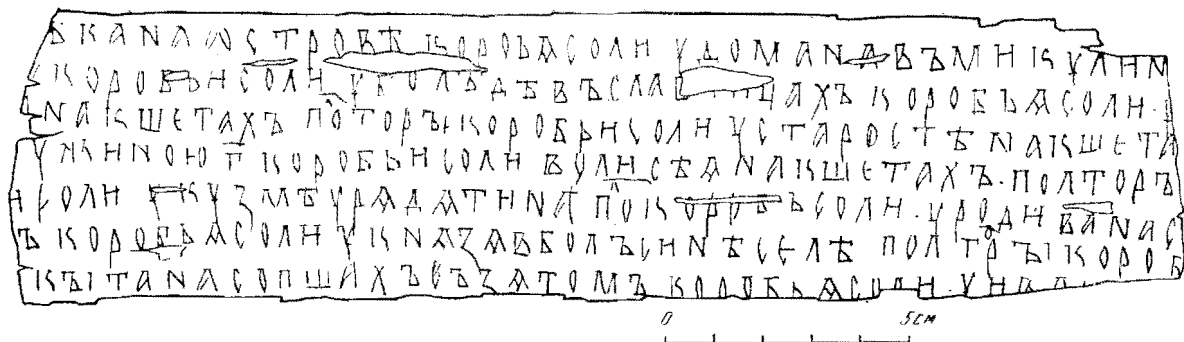 БКАNАѠСТРОВѢ КОРОБЬѦСОЛИ УДОМАNАВЪМИКУЛИN
КОРОБЬИСОЛИ УБОЛЪДѢВЪСЛА ИЦАХЪ КОРОБЪѦСОЛИ·
NАКШЕТАХЪ ПОТОРЪ КОРОБЬИСОЛИ УСТАРОСТѢNАКШЕТА
УЖИNОЮ П КОРОБЬИСОЛИ ВОЛИСѢѦNАКШЕТАХЪ·ПОЛТОРЪ
ИСОЛИ УКУЗМѢУРѦДѦТИNА ПОКОРОБЪСОЛИ·УРОДИВАNАС
Ъ КОРОБЬѦСОЛИ УКNѦЗѦВБОЛЪСИNѢСЕЛѢ ПОЛТОРЪКОРОБ
КЪІТАNАСОПШИХЪВЪЗѦТОМЪ КОРОБЬѦСОЛИ·УИВА
0 5см